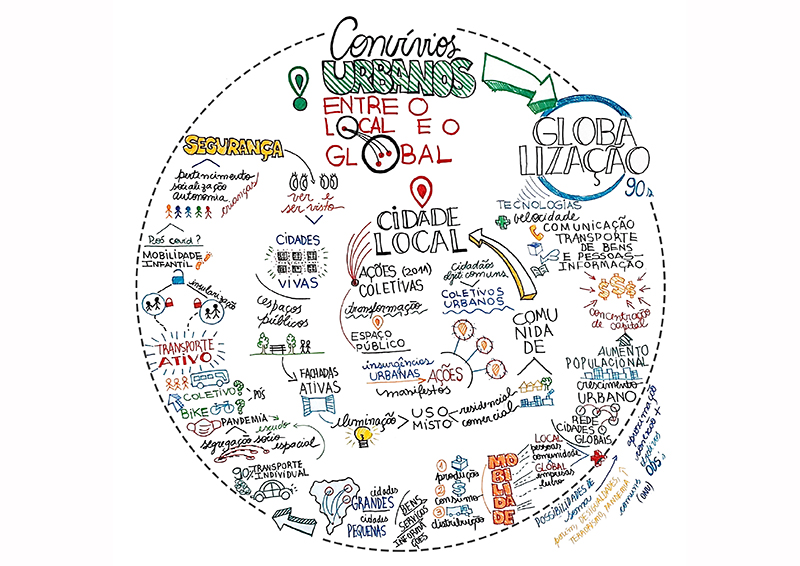 Convívios
URBANOS
ENTRE O
LOCAL E O
GLOBAL
GLOBA
LIZAÇÃO
90s
TECNOLOGIAS
velocidade
COMUNICAÇÃO
TRANSPORTE
DE BENS
E PESSOAS-
INFORMAÇÃO
concentração
de capital
AUMENTO
POPULACIONAL
crescimento
URBANO
REDE
CIDADES
GLOBAIS
LOCAL
pessoas
comunidade
GLOBAL
empresas
lucro
MOBILIDADE
1 produção
2 consumo
3 distribuição
BENS
SERVIÇOS
INFORMA
ÇÕES
cidades
GRANDES
cidades
PEQUENAS
90s
TRANSPORTE
INDIVIDUAL
segregação sócio espacial
PANDEMIA
BIKE
COLETIVO?
PÓS
TRANSPORTE
ATIVO
Pós covid?
MOBILIDADE
INFANTIL
SEGURANÇA
pertencimento
socialização
autonomia
crianças!
ver e
ser visto
CIDADES
VIVAS
espaços
públicos
FACHADAS
ATIVAS
iluminação
USO
MISTO
residencial
comercial
COMU
NIDA
DE
CIDADE
LOCAL
AÇÕES (2011)
COLETIVAS
transformação
ESPAÇO
PÚBLICO
insurgências
URBANAS
AÇÕES
manifestos
COLETIVOS
URBANOS
POSSIBILIDADES DE